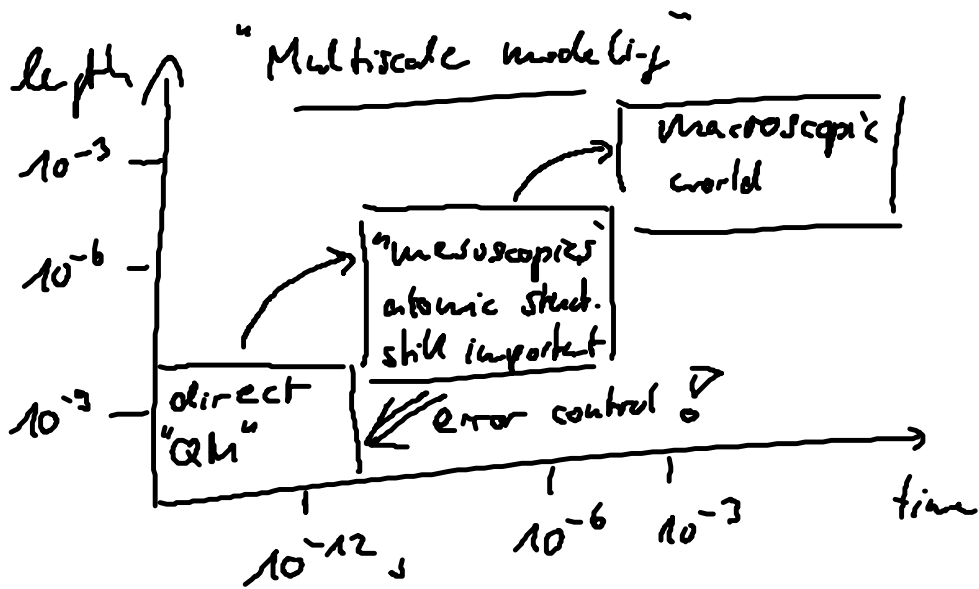 "Multiscale modeling"
length
10^-3
macroscopic
world
10^-6
"mesoscopics"
atomic struct.
still important
10^-9
direct
"QM"
error control !
time
10^-12 s
10^-6
10^-3